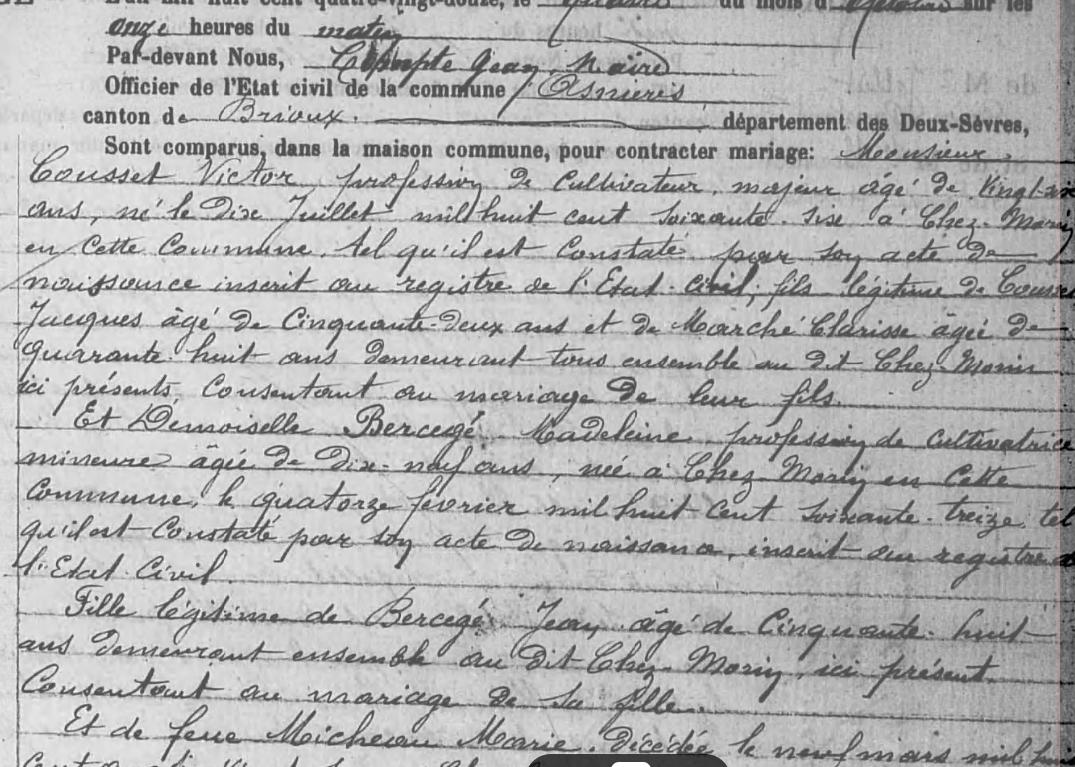 L'an mil huit cent quatre-vingt-douze, le quatre du mois d'Octobre sur les
onze heures du matin
Par-devant Nous, Compte Jean, Maire
Officier de l'Etat civil de la commune d'Asnières
canton de Brioux. département des Deux-Sèvres,
Sont comparus, dans la maison commune, pour contracter mariage: Monsieur
Cousset Victor, profession de Cultivateur, majeur âgé de Vingt-six
ans, né le Dix Juillet mil huit cent Soixante-Six à Chez-Morin
en Cette Commune, tel qu'il est Constaté par son acte de
naissance inscrit au registre de l'Etat-Civil, fils légitime de Cousset
Jacques âgé de Cinquante-deux ans et de Marché Clarisse âgée de
quarante-huit ans demeurant tous ensemble au dit Chez-Morin
ici présents, Consentant au mariage de leur fils.
Et Demoiselle Bercegé Madeleine, profession de Cultivatrice
mineure âgée de Dix-neuf ans, née à Chez-Morin en Cette
Commune, le quatorze février mil huit Cent Soixante-treize, tel
qu'il est Constaté par son acte de naissance, inscrit au registre de
l'Etat-Civil.
Fille légitime de Bercegé Jean âgé de Cinquante-huit
ans demeurant ensemble au dit Chez-Morin, ici présent,
Consentant au mariage de Sa fille.
Et de feue Micheau Marie, Décédée le neuf mars mil huit